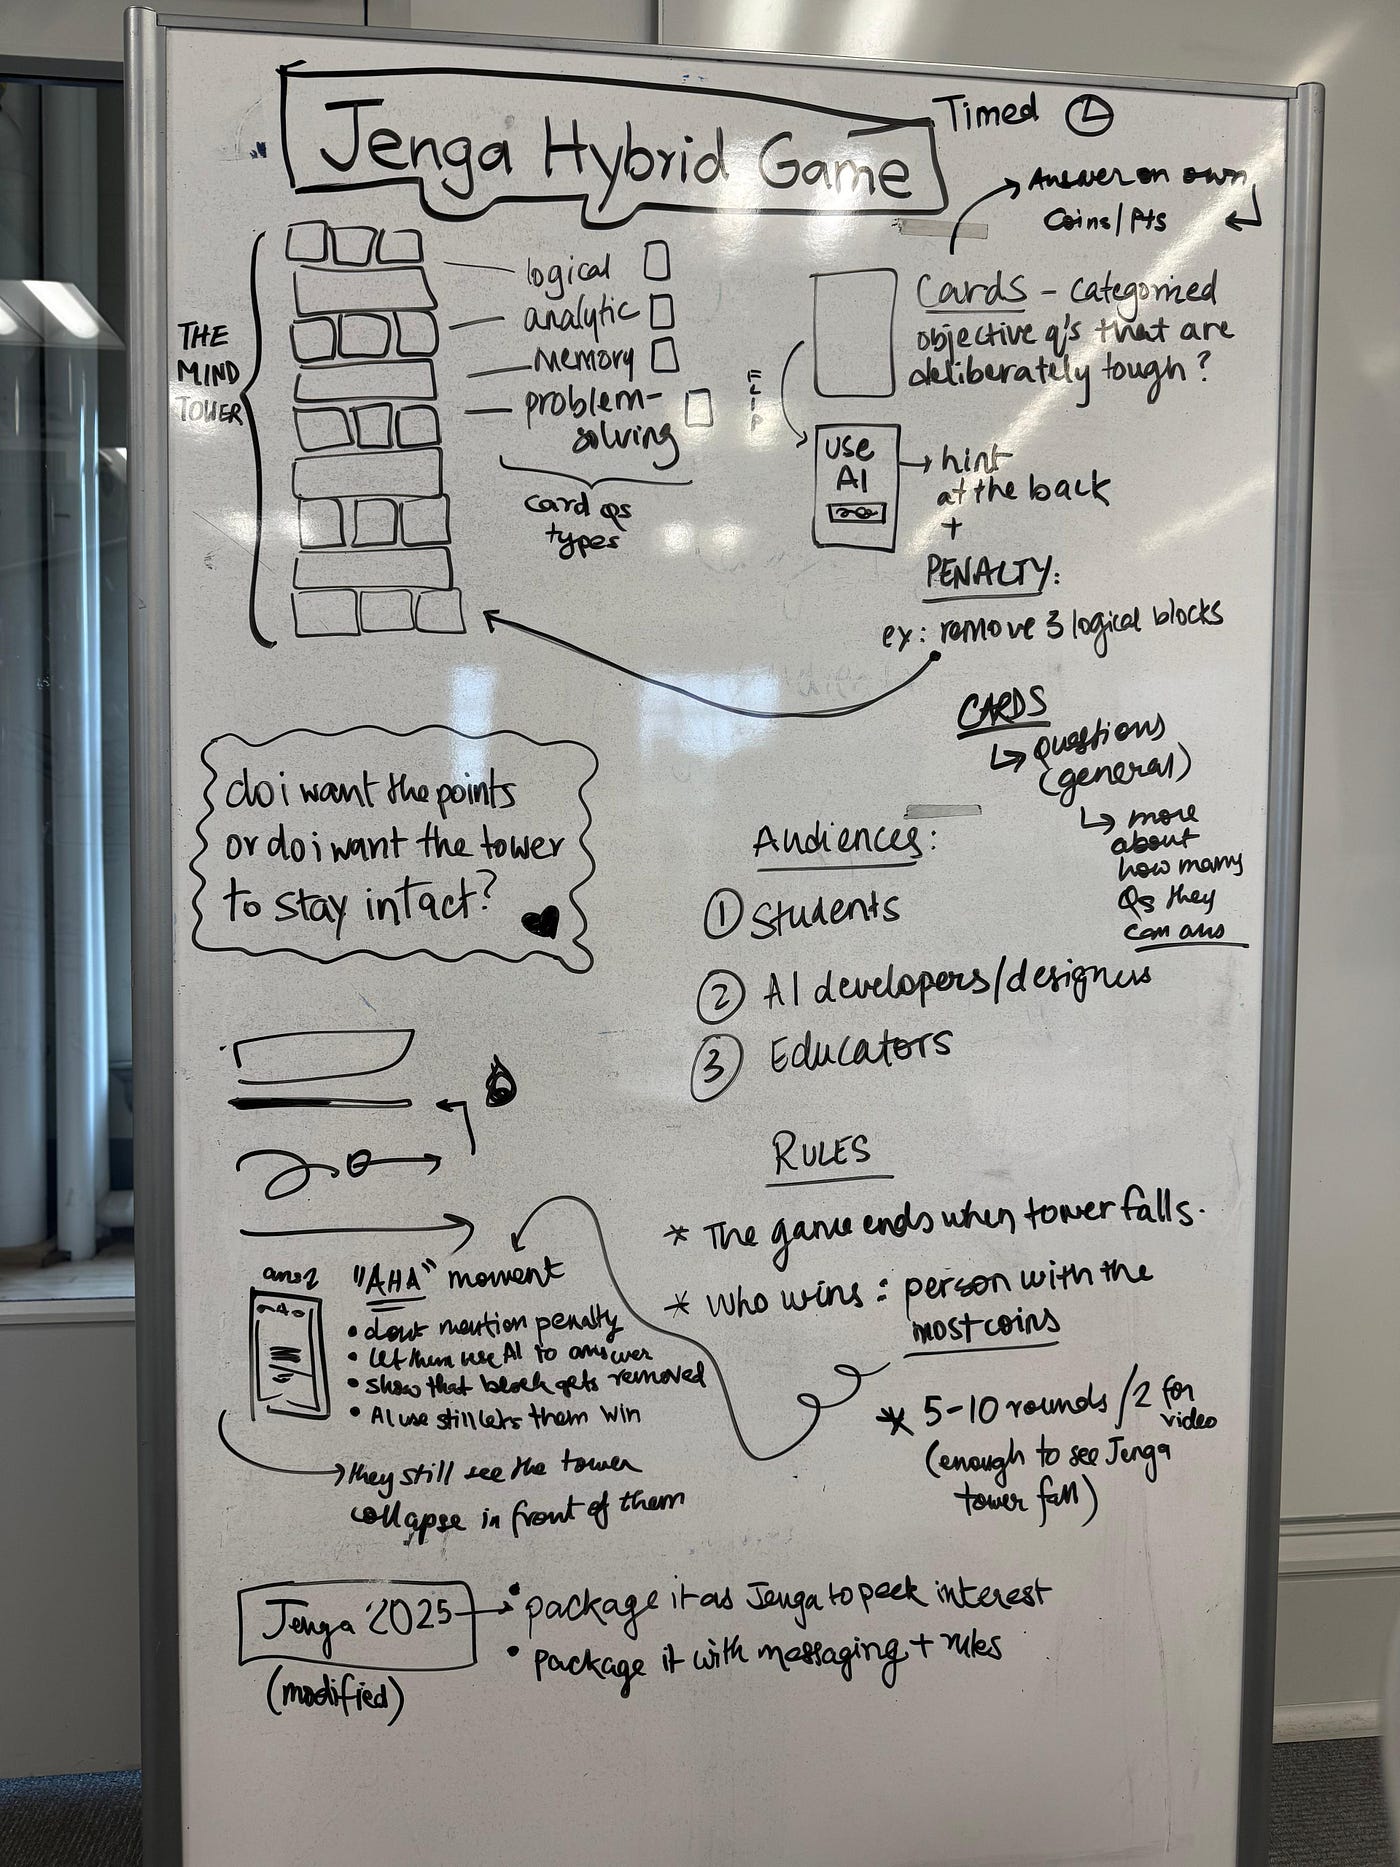 Jenga Hybrid Game
Timed
Answer on own
Coins/Pts
THE
MIND
TOWER
logical
analytic
Memory
problem-
solving
card qs
types
Cards - categorized
objective q's that are
deliberately tough?
FLIP
USE
AI
hint
at the back
+
PENALTY:
ex: remove 3 logical blocks
CARDS
questions
(general)
more
about
how many
Qs they
can ans
do i want the points
or do i want the tower
to stay intact?
Audiences:
1 Students
2 AI developers/designers
3 Educators
RULES
* The game ends when tower falls.
* Who wins: person with the
most coins
* 5-10 rounds /2 for
video
(enough to see Jenga
tower fall)
"AHA" moment
• dont mention penalty
• let them use AI to answer
• show that block gets removed
• AI use still lets them win
they still see the tower
collapse in front of them
Jenga 2025
(modified)
• package it as Jenga to peek interest
• package it with messaging + rules